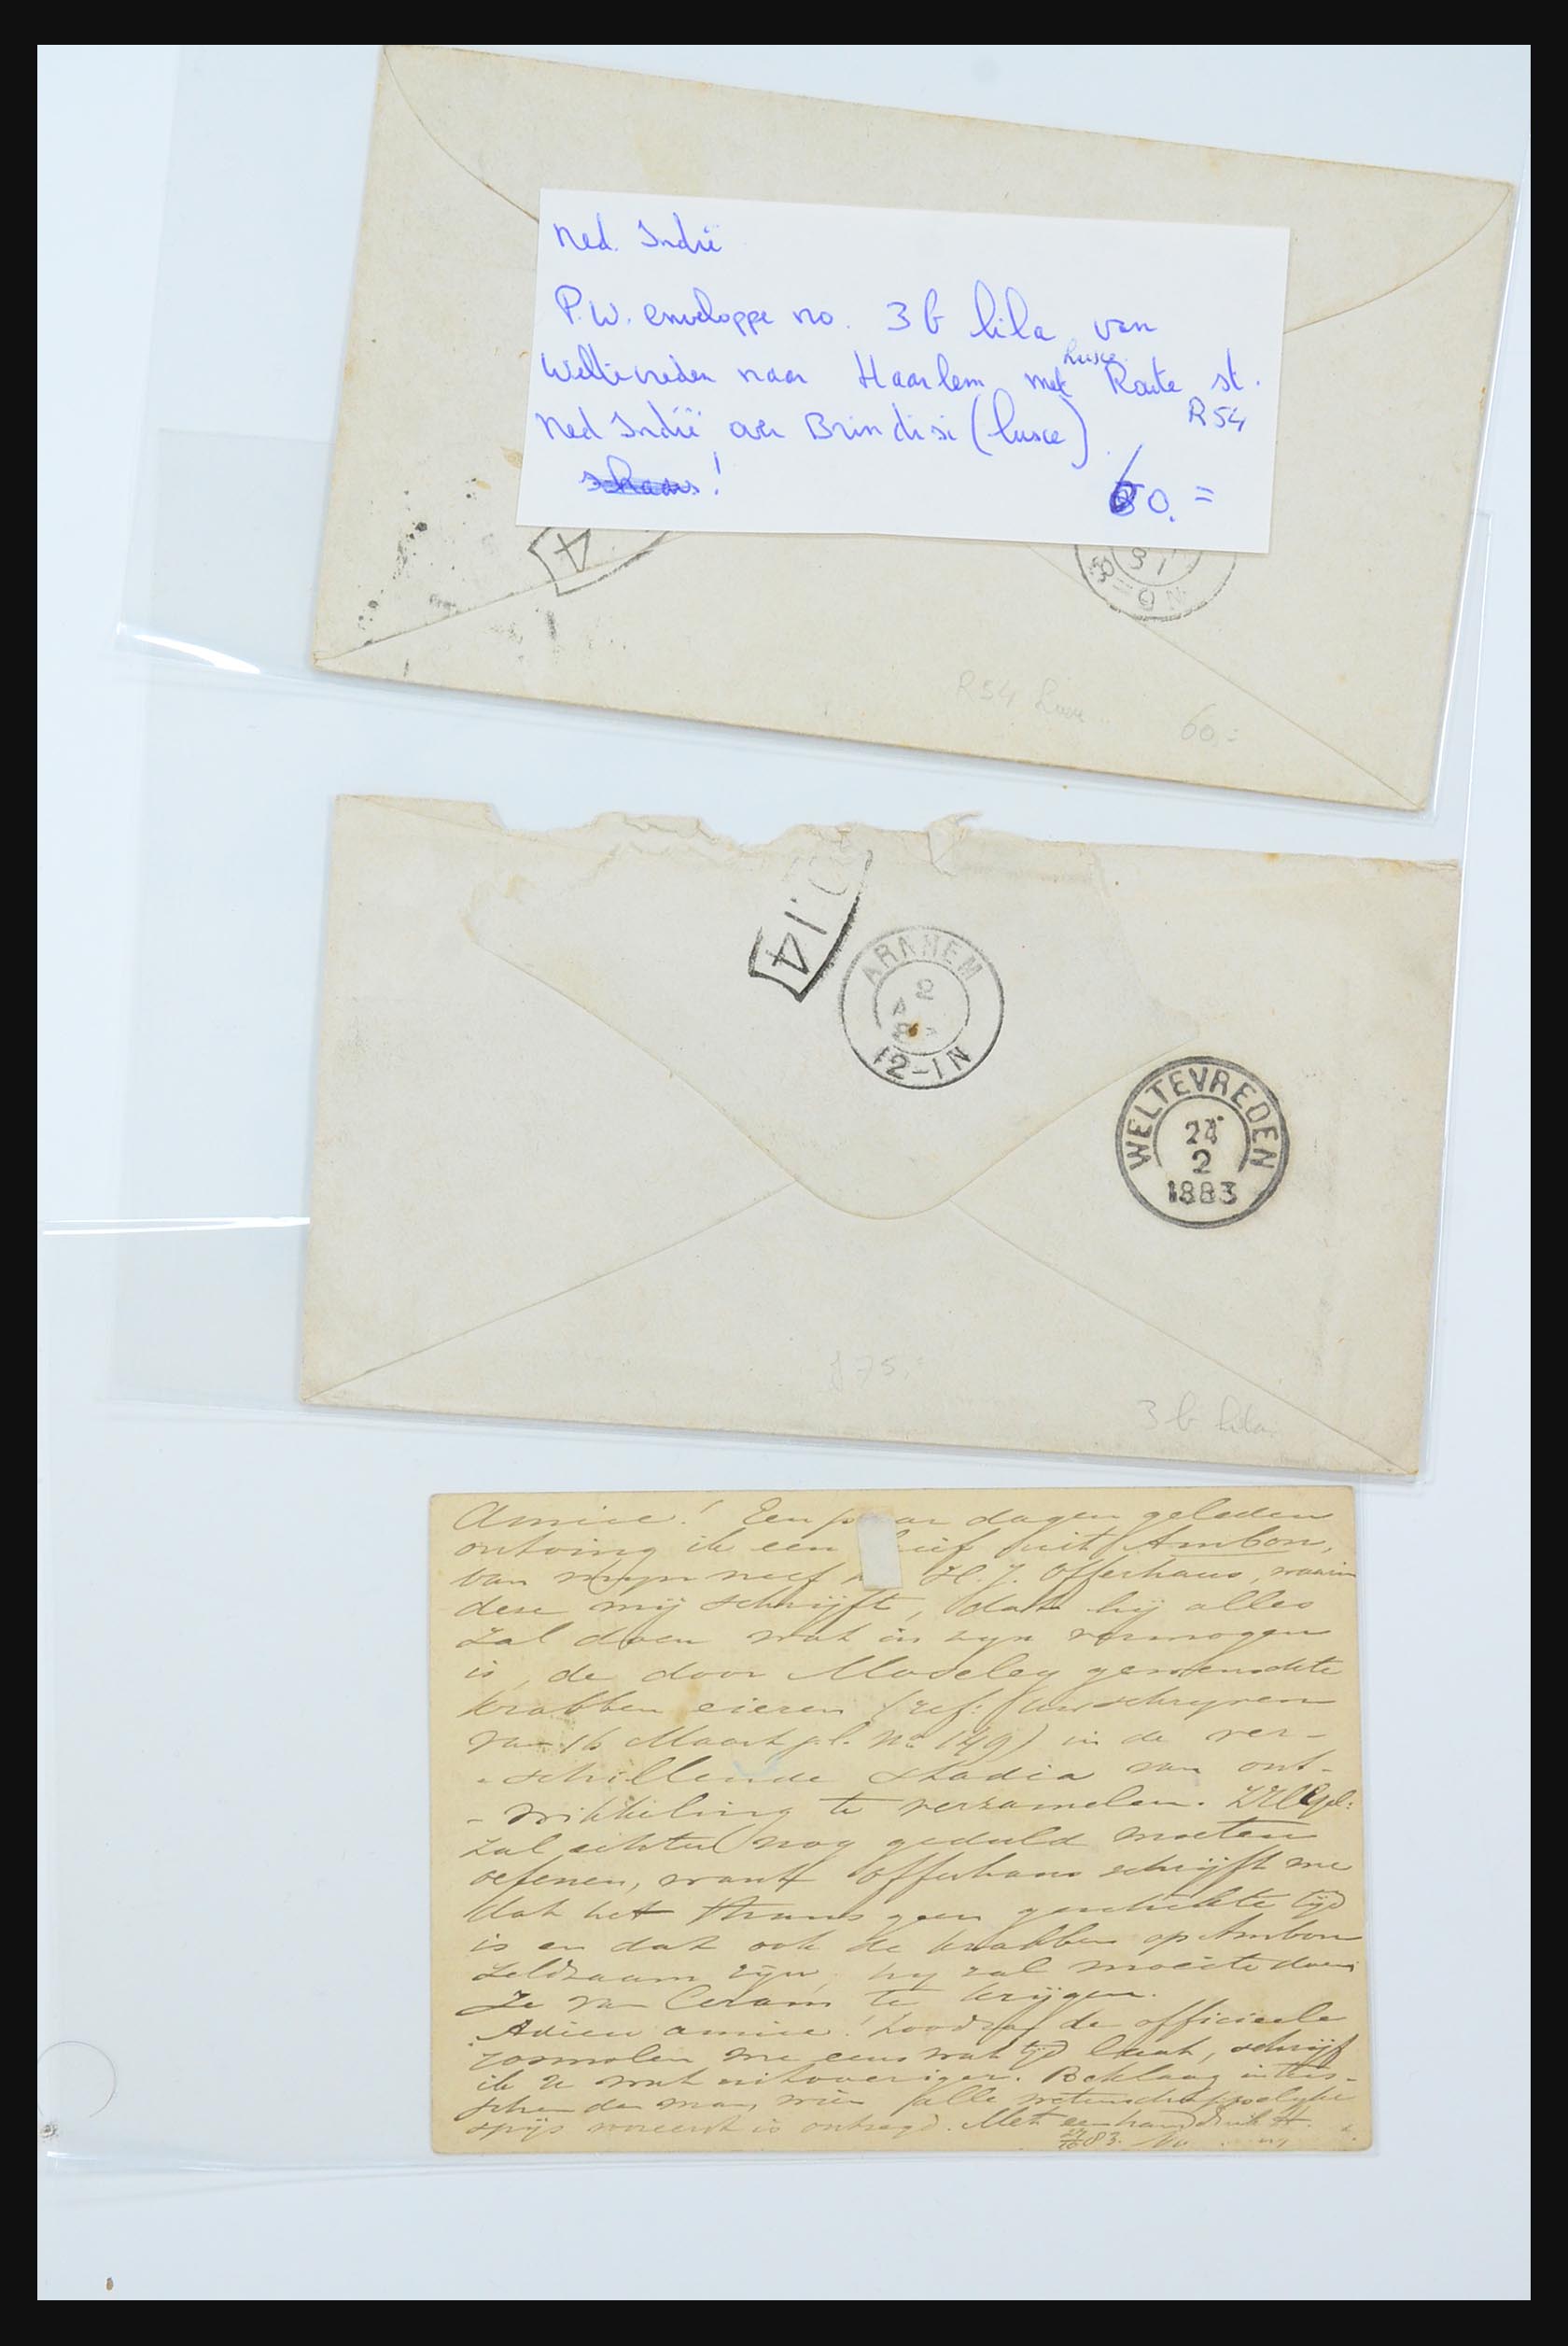 Ned. Indië
P.W. enveloppe no. 3b lila van
Weltevreden naar Haarlem met lusce Route st.
R54
Ned Indië over Brindisi (lusce)
schaars!
60.=
4
31
8-9 N
R54
60.=
D.14
ARNHEM
2
A
12-1N
WELTEVREDEN
24
2
1883
f 75,
3b lila
Amice! Een paar dagen geleden
ontving ik een brief uit Ambon,
van mijn neef H. J. Offerhaus, waarin
deze mij schrijft, dat hij alles
zal doen wat in zijn vermogen
is, de door Moseley gewenschte
krabben eieren (ref: uw schrijven
van 16 Maart j.l. No 149) in de ver-
-schillende stadia van ont-
-wikkeling te verzamelen.
zal echter nog geduld moeten
oefenen, want Offerhaus schrijft me
dat het thans geen geschikte tijd
is en dat ook de krabben op Ambon
zeldzaam zijn; hij zal moeite doen
ze van Ceram te krijgen.
Adieu amice! Zoodra de officieele
rosmolen me eens wat tijd laat, schrijf
ik U wat uitvoeriger. Beklaag intus-
schen den man, wien alle wetenschappelijke
spijs is ontzegd. Met een handdruk
83.